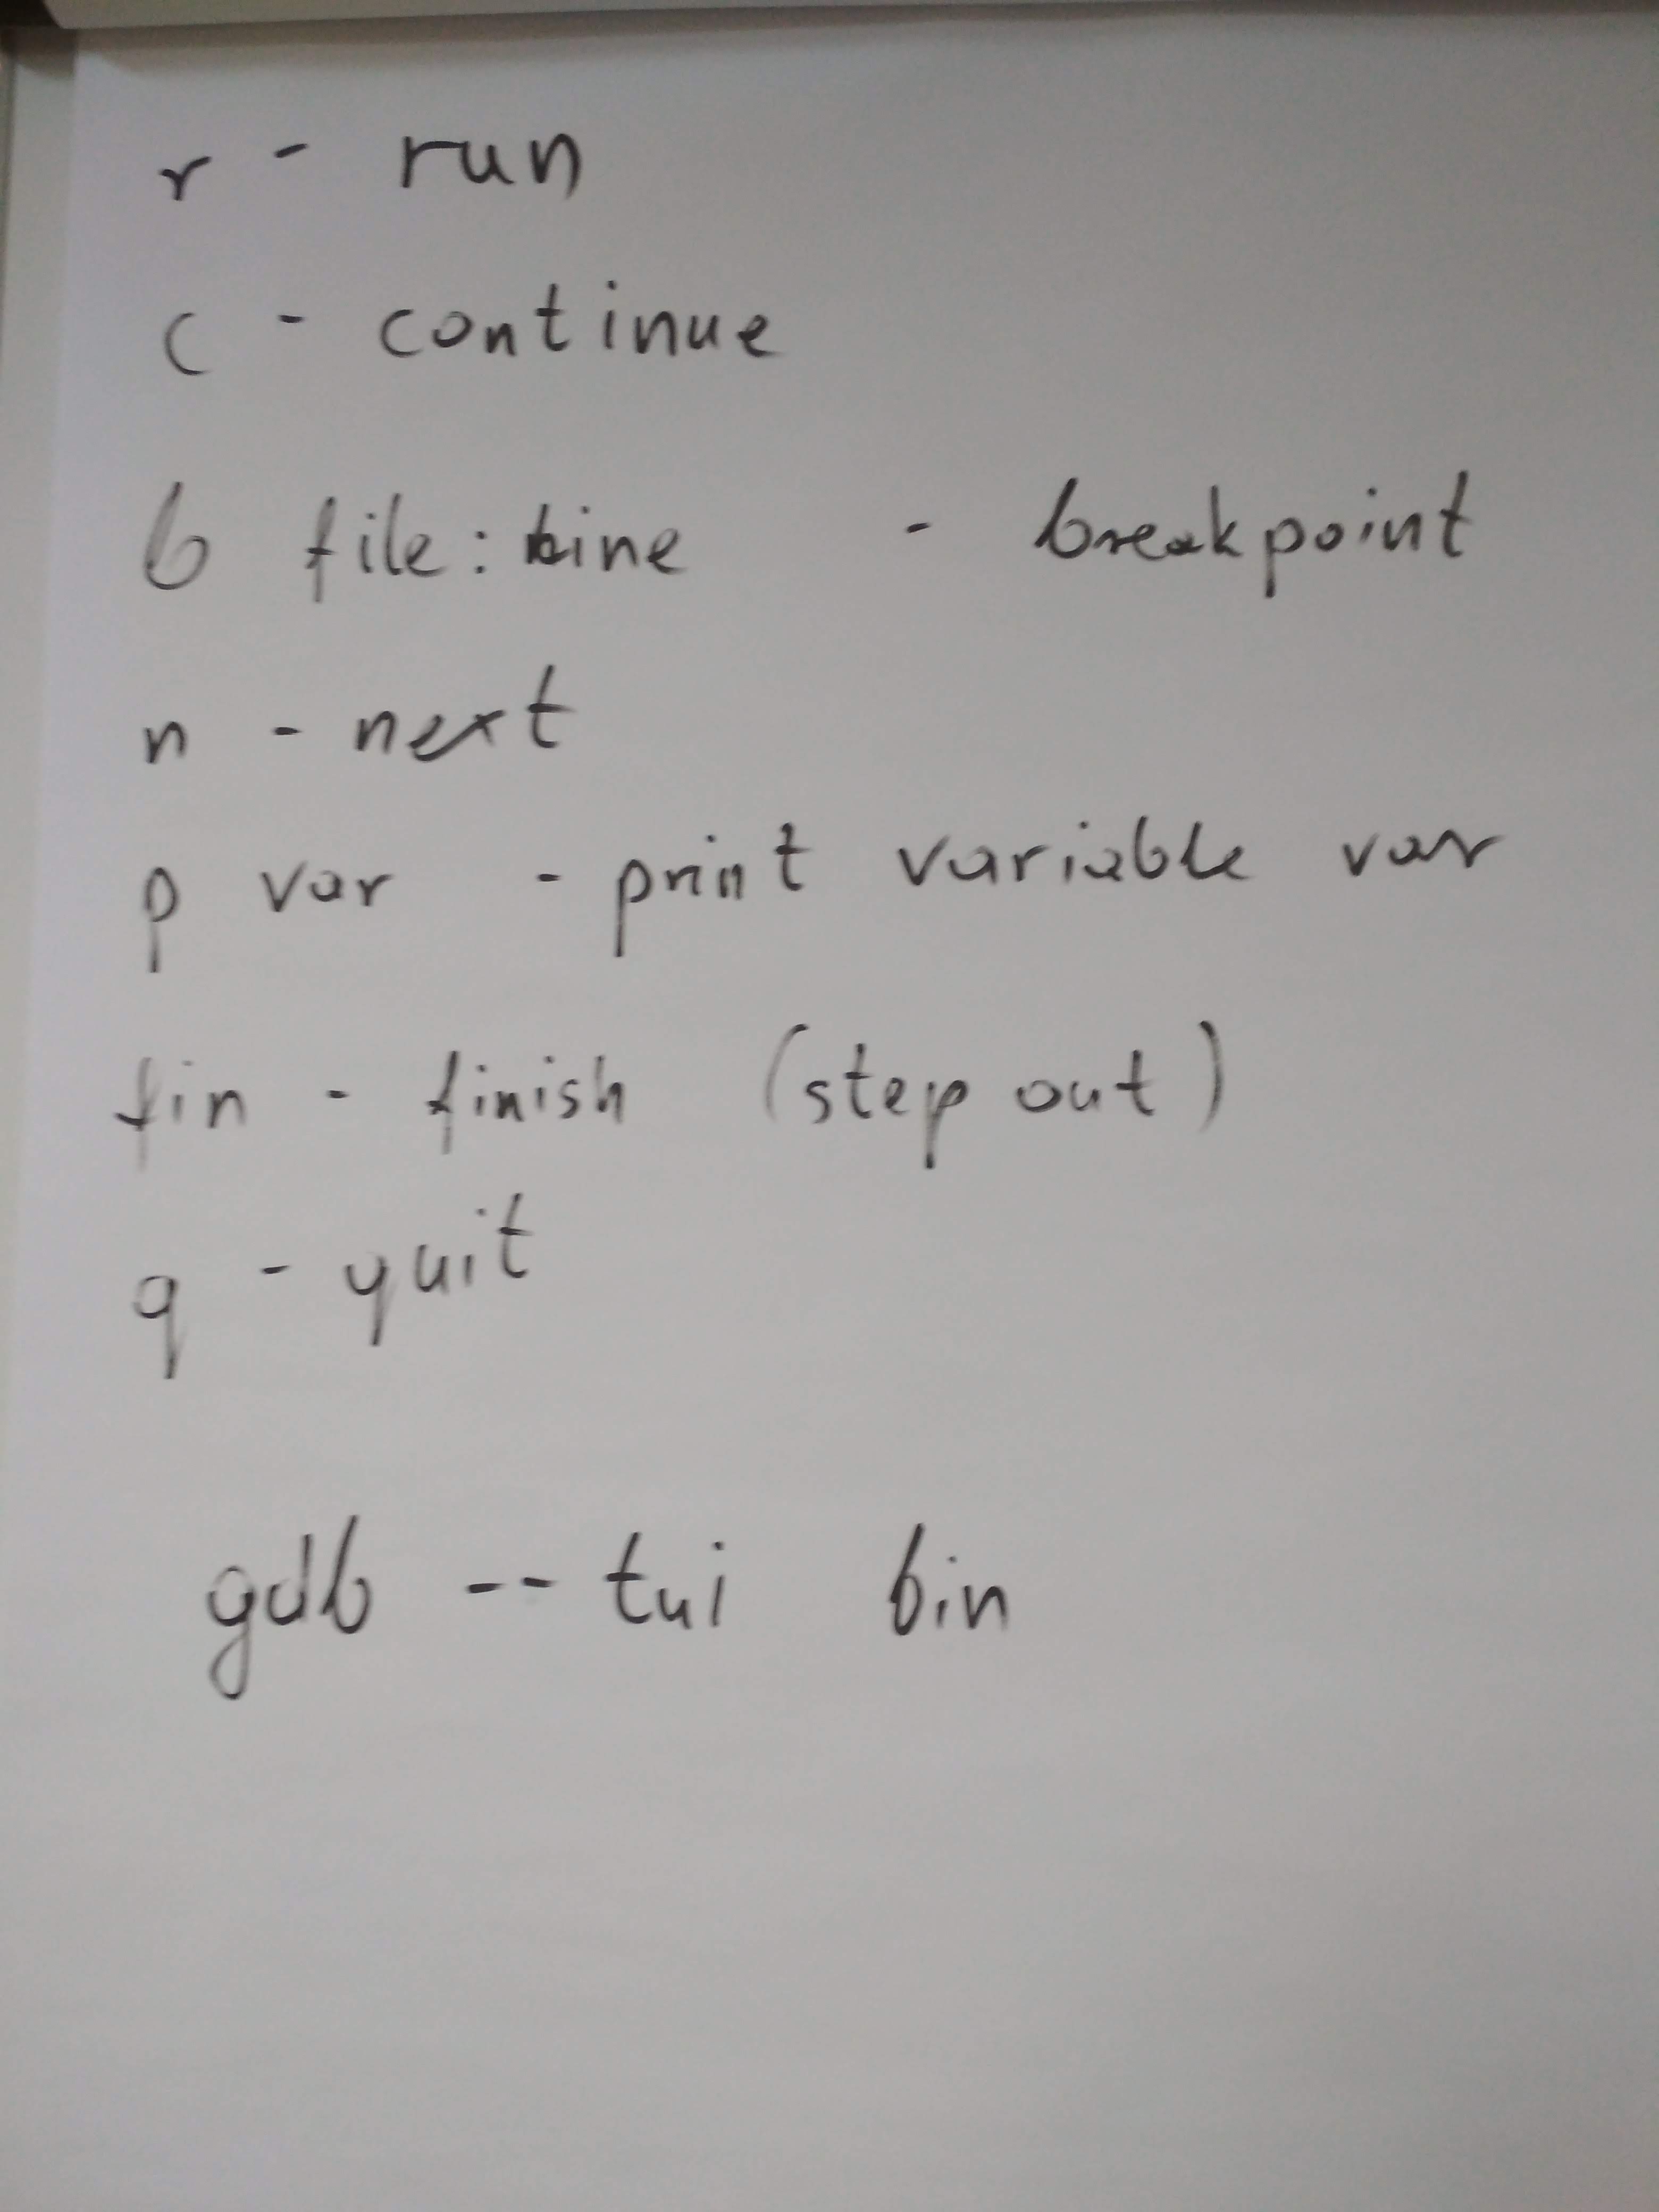 r - run
c - continue
b file:line - breakpoint
n - next
p var - print variable var
fin - finish (step out)
q - quit
gdb --tui bin